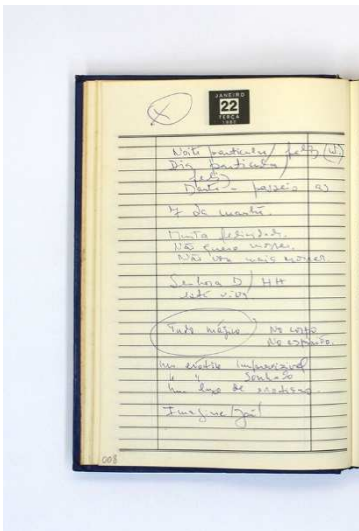 X
JANEIRO
22
TERÇA
Noite particular/feliz (W)
Dia particular
feliz
Dante - passeio as
7 da manhã.
Muita felicidade.
Não quero morrer.
Não vou mais morrer.
Senhora D / HH
está viva
Tudo mágico No corpo
No espírito.
Um improvável
" " Sonhado
Um luxo de
Imagine/Já!
008